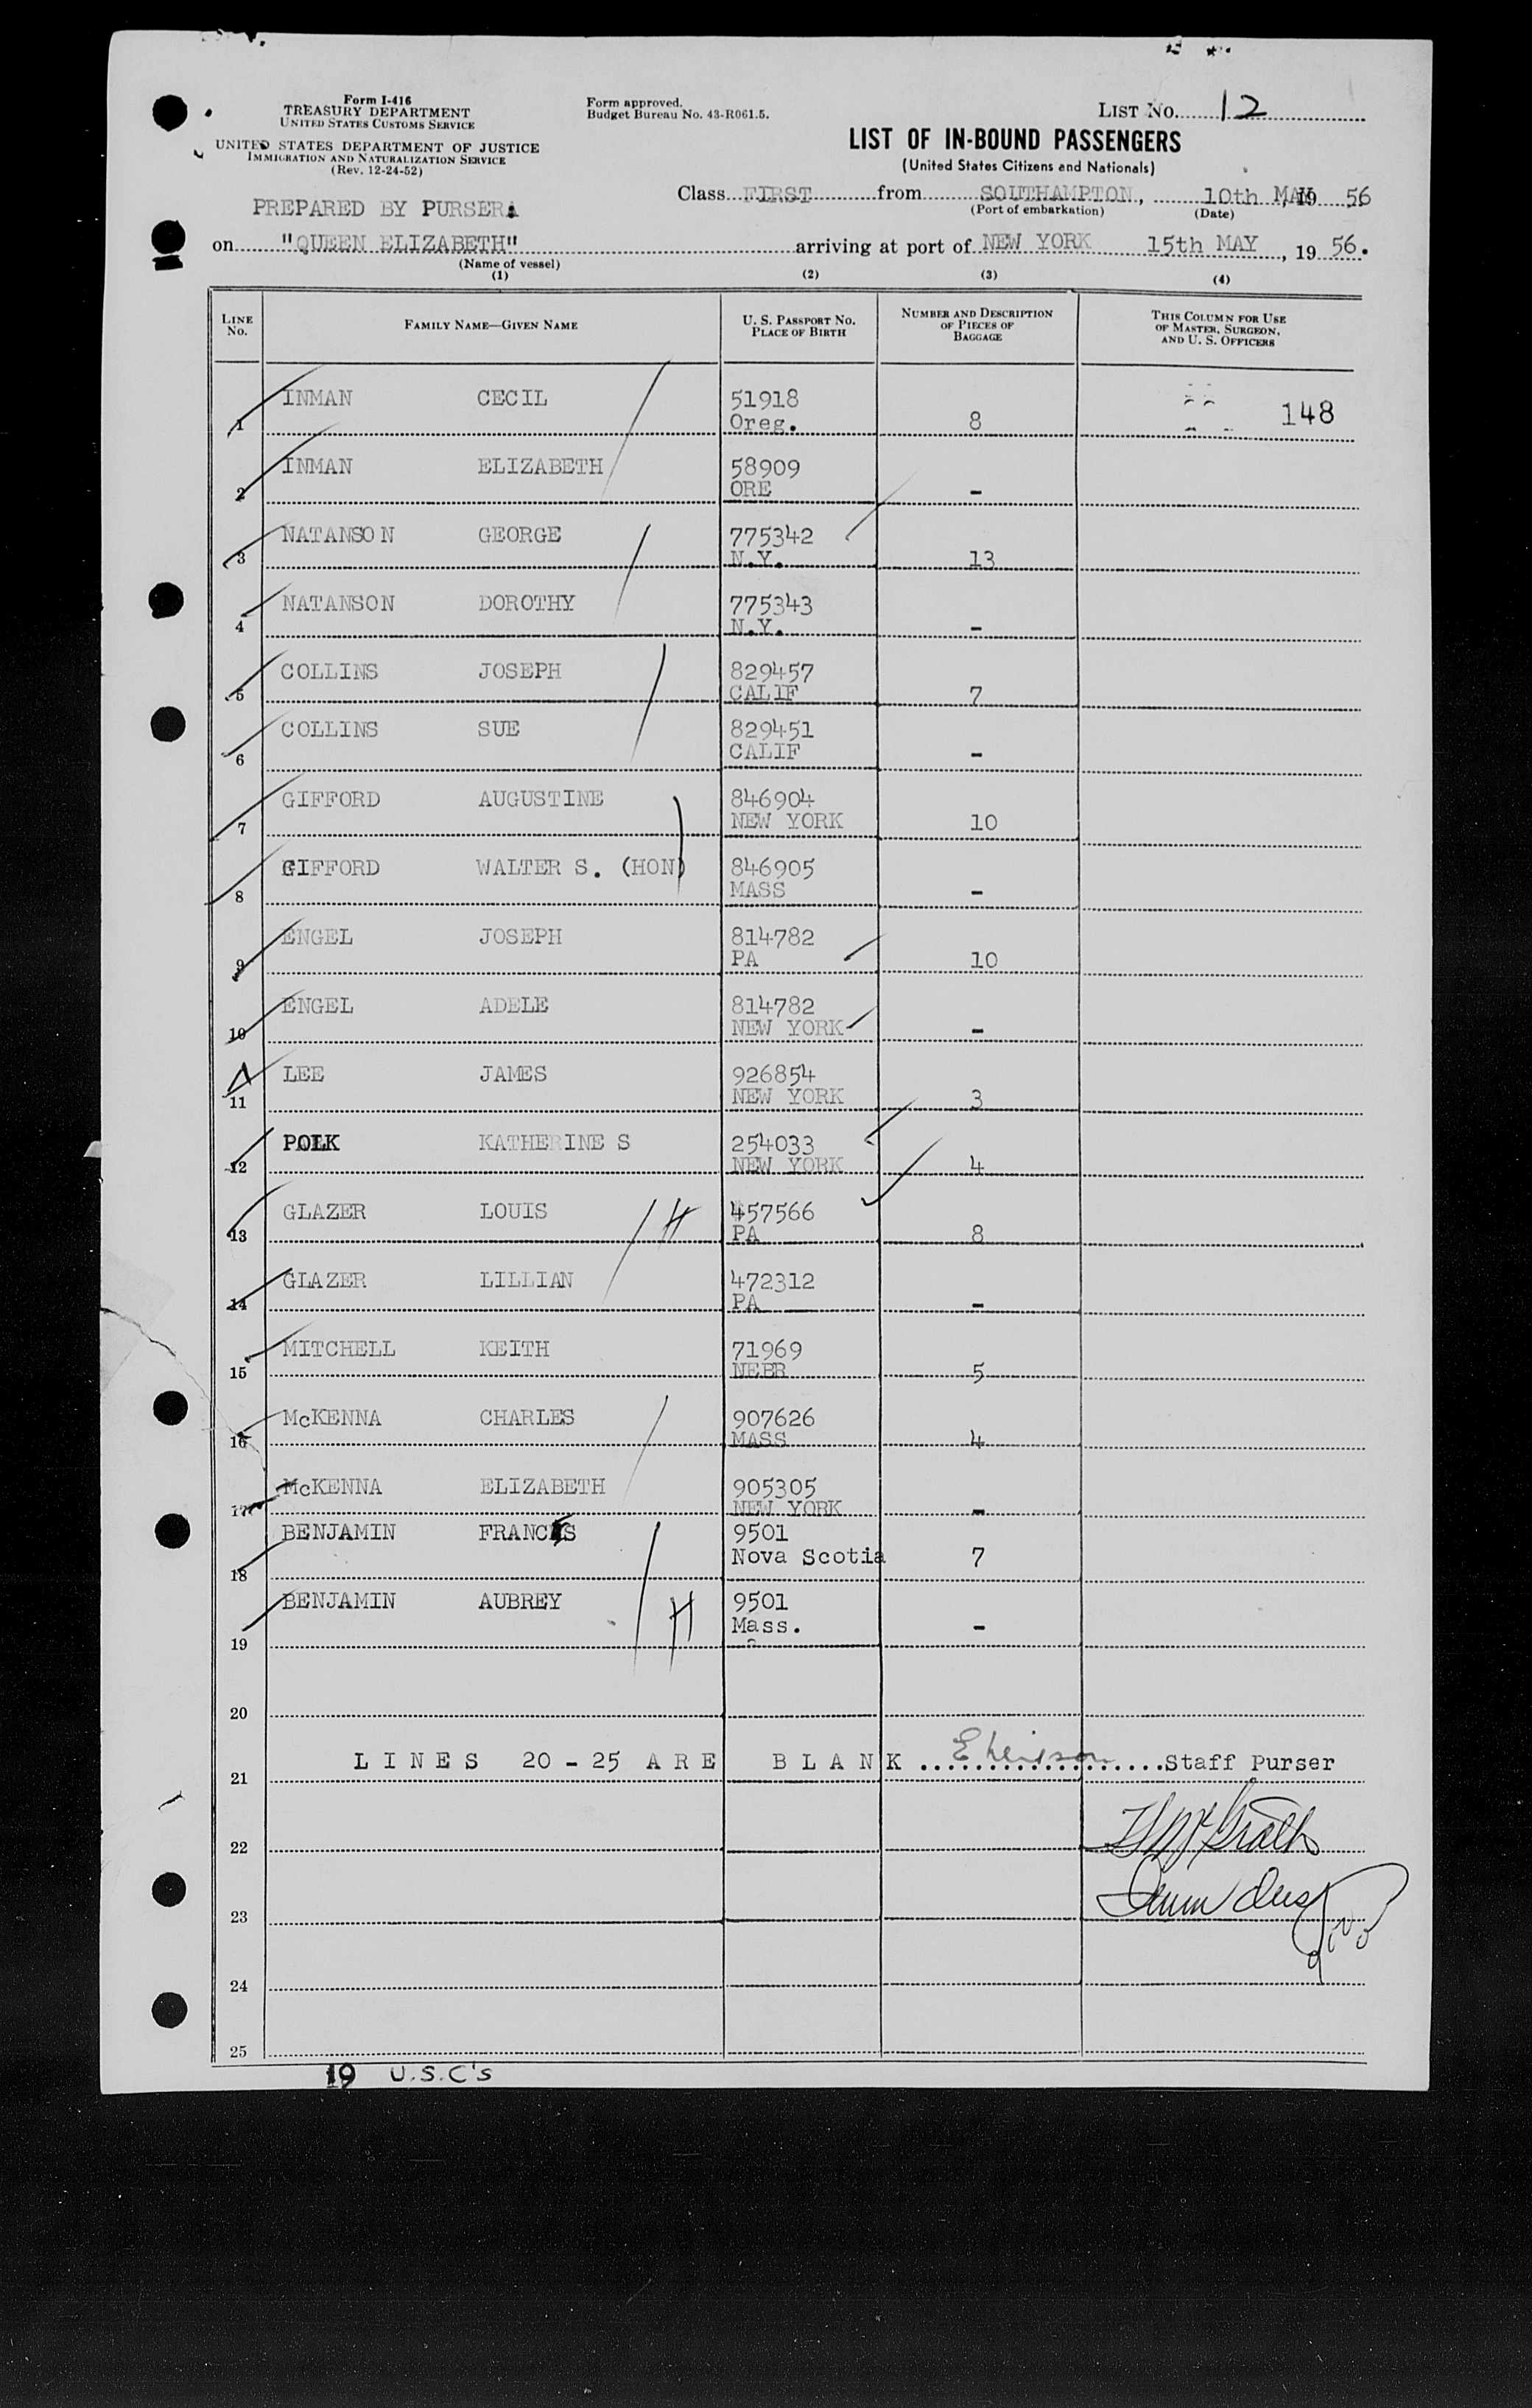 Form I-416
TREASURY DEPARTMENT
UNITED STATES CUSTOMS SERVICE
UNITED STATES DEPARTMENT OF JUSTICE
IMMIGRATION AND NATURALIZATION SERVICE
(Rev. 12-24-52)
Form approved.
Budget Bureau No. 43-R061.5.
LIST NO. 12
LIST OF IN-BOUND PASSENGERS
(United States Citizens and Nationals)
PREPARED BY PURSER
Class FIRST from SOUTHAMPTON, 10th MAY, 19 56
(Port of embarkation) (Date)
on "QUEEN ELIZABETH" arriving at port of NEW YORK 15th MAY, 19 56.
(Name of vessel)
(1) (2) (3) (4)
LINE NO. FAMILY NAME—GIVEN NAME U. S. PASSPORT NO. PLACE OF BIRTH NUMBER AND DESCRIPTION OF PIECES OF BAGGAGE THIS COLUMN FOR USE OF MASTER, SURGEON, AND U. S. OFFICERS
1 INMAN CECIL 51918 Oreg. 8 148
2 INMAN ELIZABETH 58909 ORE -
3 NATANSON GEORGE 775342 N.Y. 13
4 NATANSON DOROTHY 775343 N.Y. -
5 COLLINS JOSEPH 829457 CALIF 7
6 COLLINS SUE 829451 CALIF -
7 GIFFORD AUGUSTINE 846904 NEW YORK 10
8 GIFFORD WALTER S. (HON) 846905 MASS -
9 ENGEL JOSEPH 814782 PA 10
10 ENGEL ADELE 814782 NEW YORK -
11 LEE JAMES 926854 NEW YORK 3
12 POLK KATHERINE S 254033 NEW YORK 4
13 GLAZER LOUIS H 457566 PA 8
14 GLAZER LILLIAN 472312 PA -
15 MITCHELL KEITH 71969 NEBR 5
16 McKENNA CHARLES 907626 MASS 4
17 McKENNA ELIZABETH 905305 NEW YORK -
18 BENJAMIN FRANCES 9501 Nova Scotia 7
19 BENJAMIN AUBREY H 9501 Mass. -
20
LINES 20-25 ARE BLANK Staff Purser
21
22
23
24
25
19 U.S.C'S